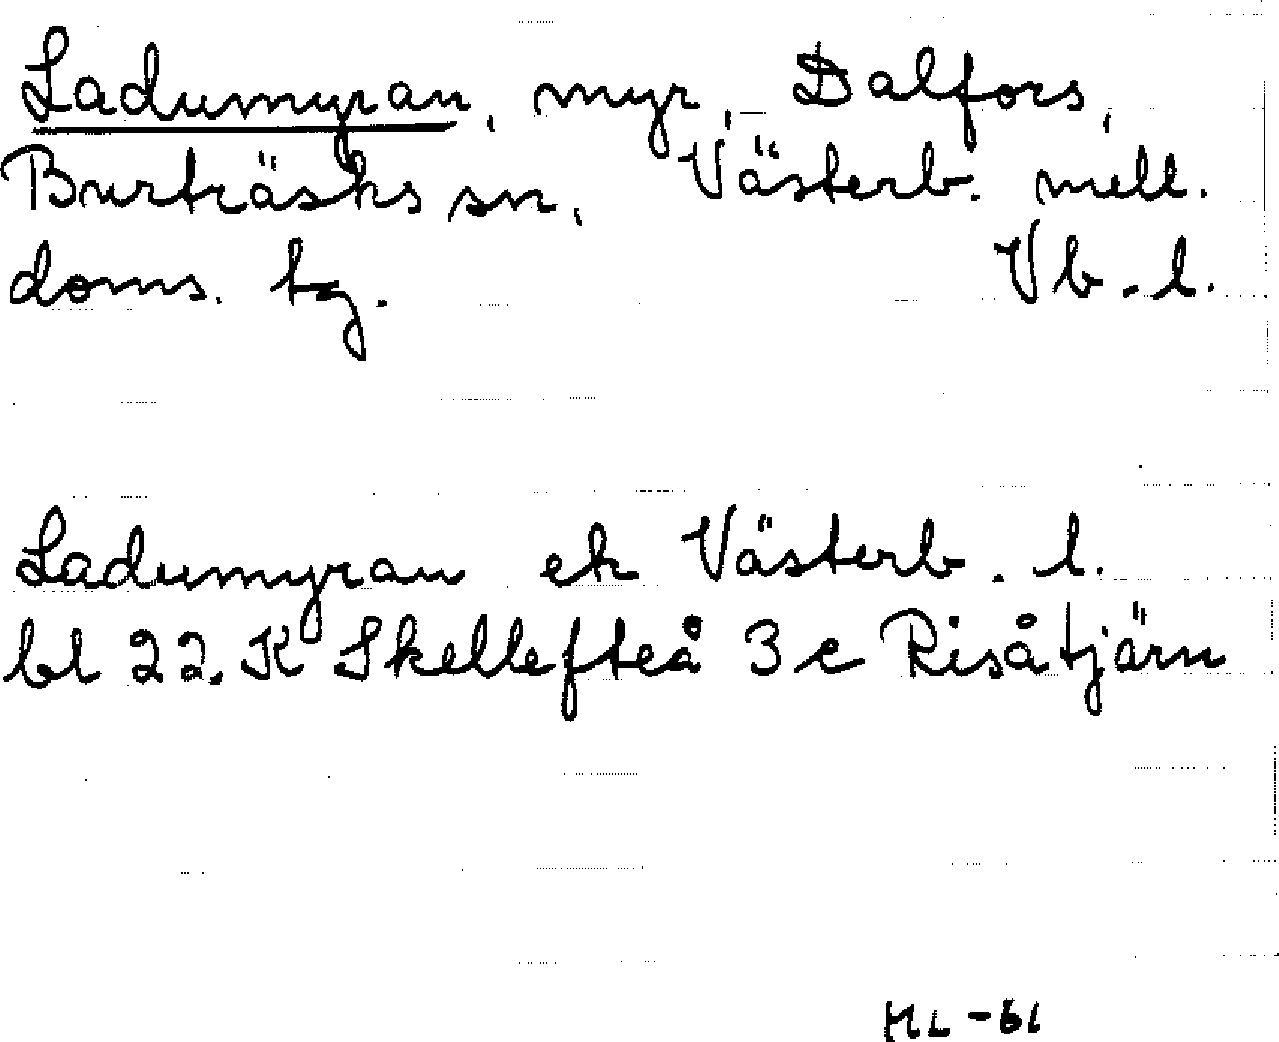 Ladumyran, myr, Dalfors,
Burträsks sn, Västerb. mell.
doms. tg. Vb. l.
Ladumyran ek Västerb. l.
bl 22. K Skellefteå 3 c Risåtjärn
HL -61